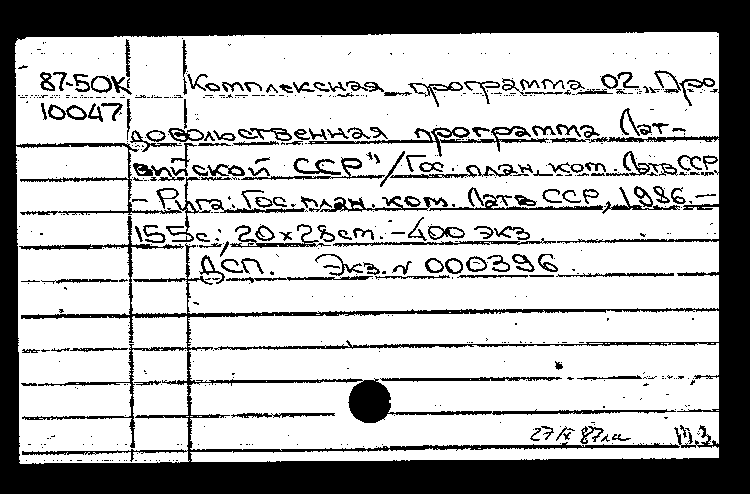 87-5ОК Комплексная программа 02 „Про
10047
довольственная программа Лат-
вийской ССР"/Гос. план. ком. ЛатвССР.
- Рига: Гос. план. ком. Латв ССР, 1986.-
155с.; 20х28см. -400 экз.
ДСП. Экз. N 000396.